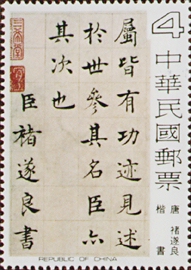 屬皆有功迹見述
於世參其名臣亦
其次也
臣褚遂良書
4
中華民國郵票
唐 褚遂良
楷書
REPUBLIC OF CHINA